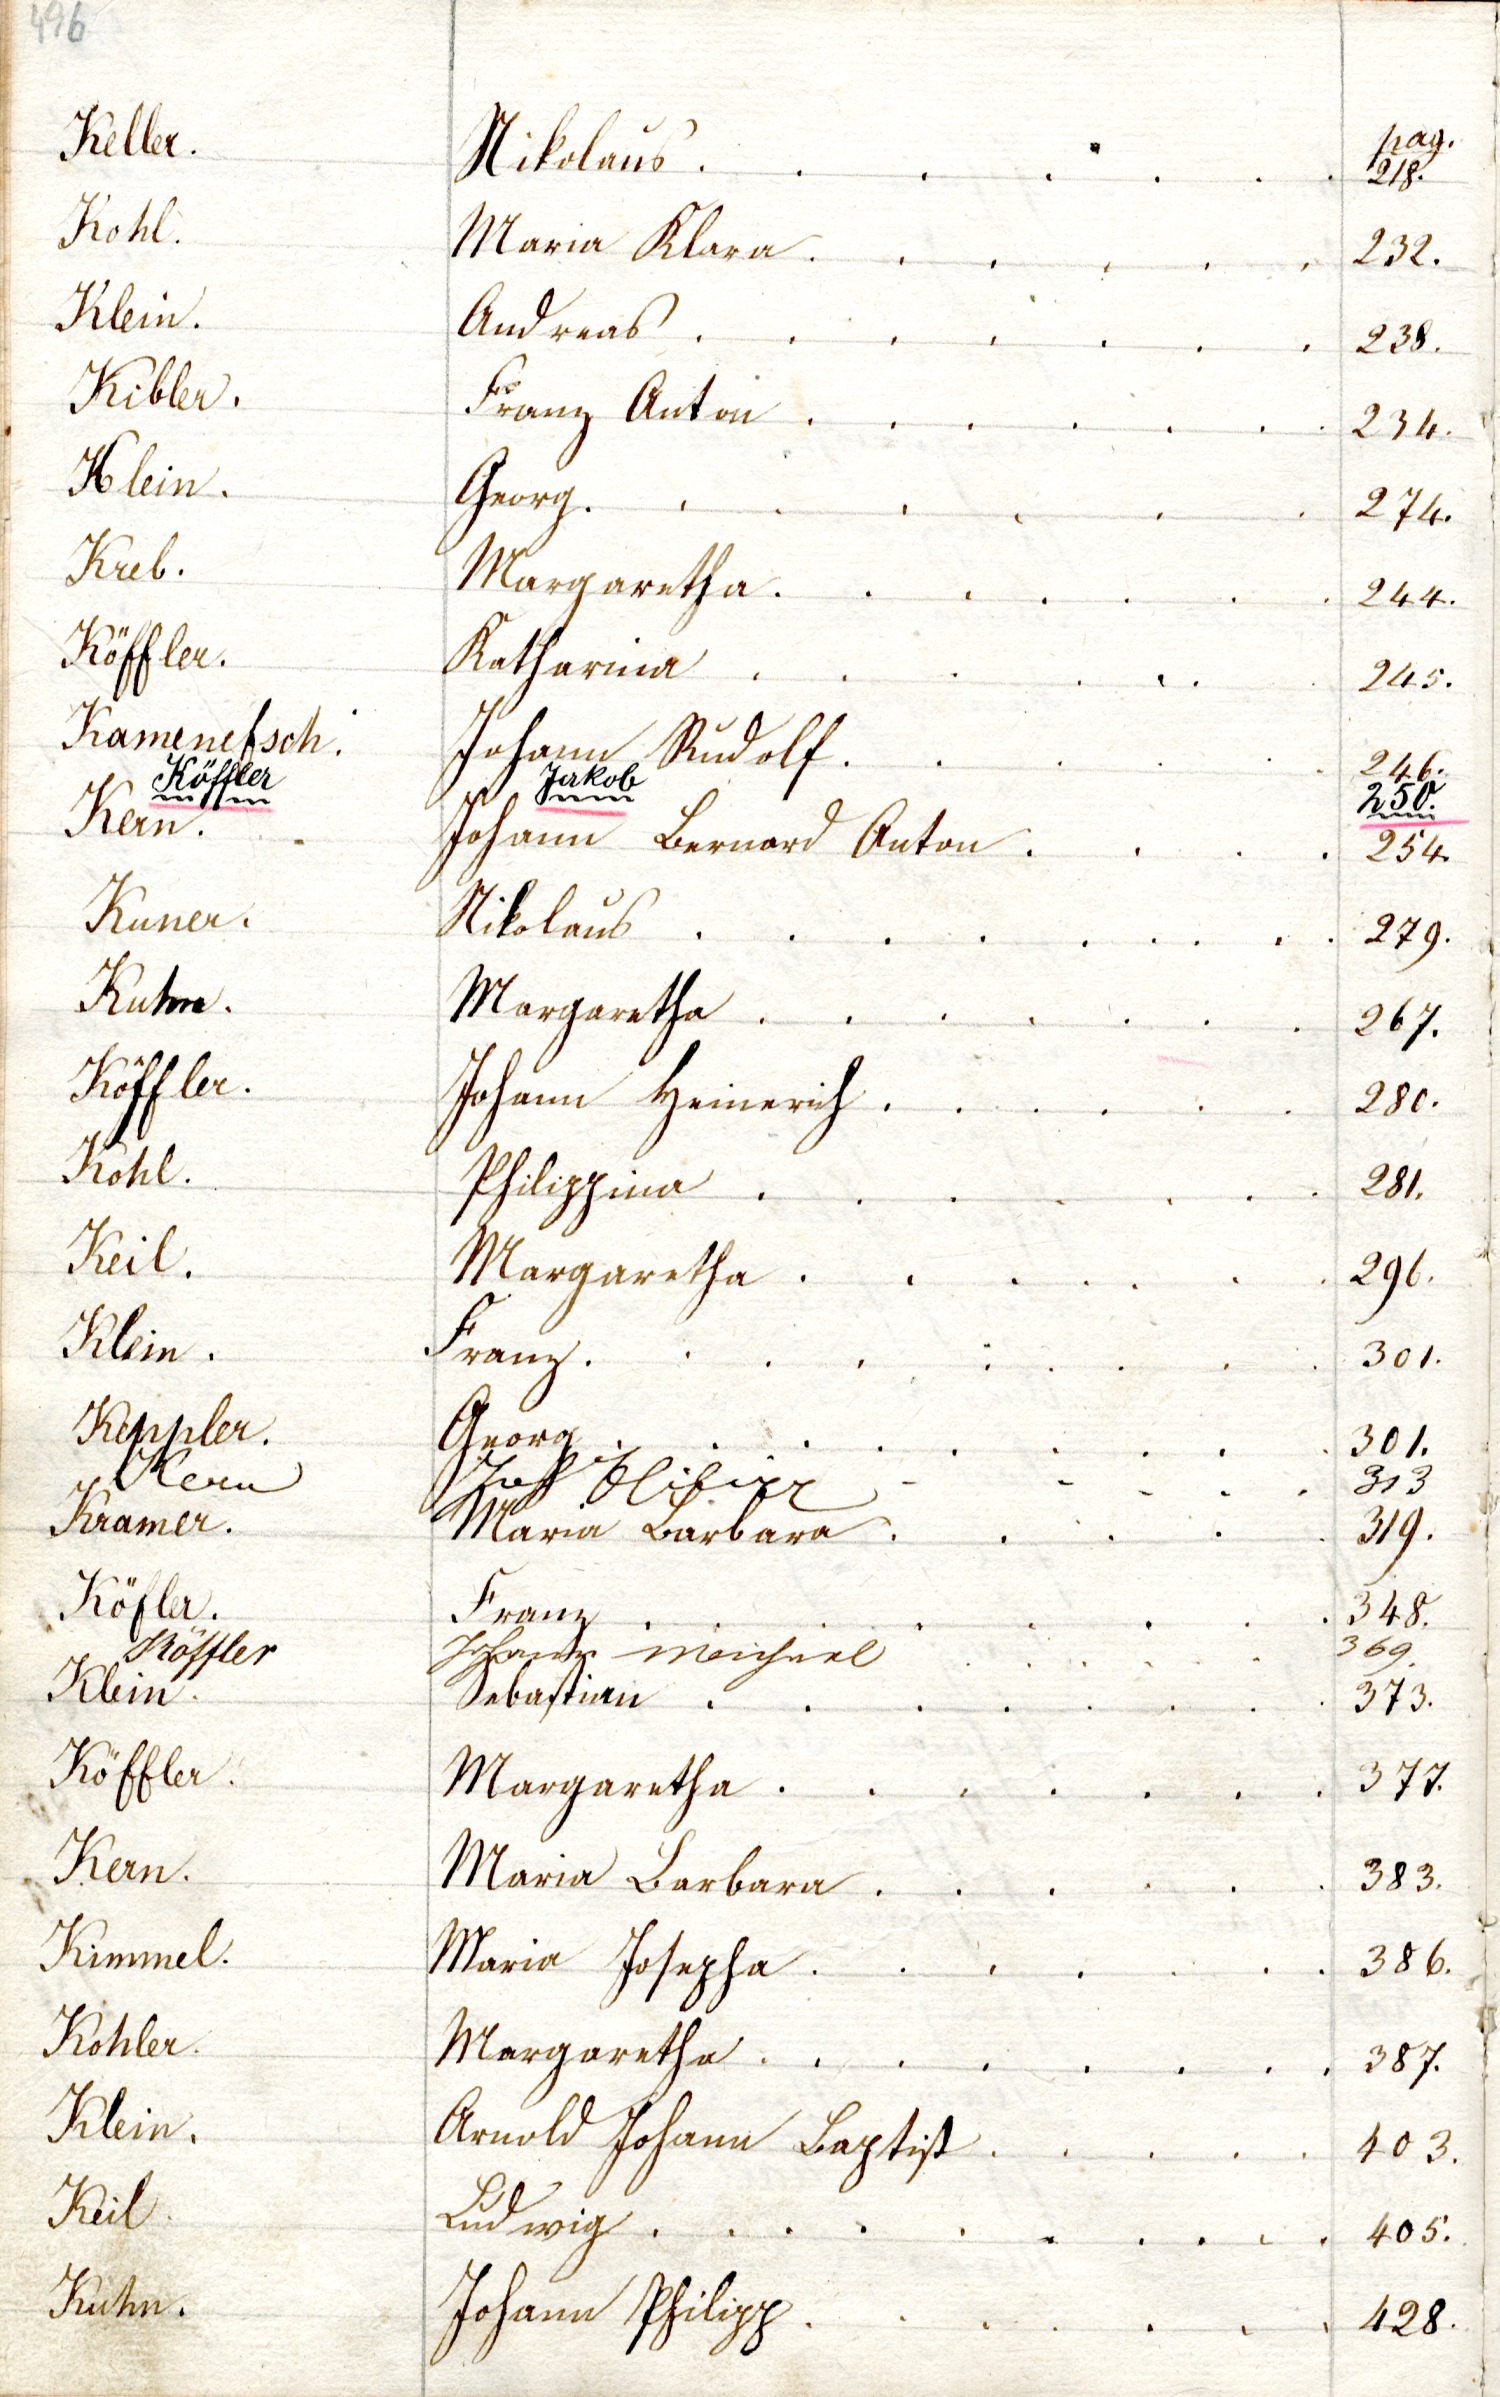 496
pag.
Keller. Nikolaus. 218.
Kohl. Maria Klara. 232.
Klein. Andreas. 238.
Kibler. Franz Anton. 234.
Klein. Georg. 274.
Kreb. Margaretha. 244.
Köffler. Katharina. 245.
Johann Rudolf. 246.
Köffler Jakob 250.
Kern. Johann Bernard Anton. 254.
Kuner. Nikolaus. 279.
Kuhn. Margaretha. 267.
Köffler. Johann Heinerich. 280.
Kohl. Philippina. 281.
Keil. Margaretha. 296.
Klein. Franz. 301.
Keppler. Georg. 301.
Kern Joh Philipp 313
Kramer. Maria Barbara. 319.
Köfler. Franz. 348.
Köffler Johann Meichael 369.
Klein. Sebastian. 373.
Köffler. Margaretha. 377.
Kern. Maria Barbara. 383.
Kimmel. Maria Josepha. 386.
Kohler. Margaretha. 387.
Klein. Arnold Johann Baptist. 403.
Keil. Ludwig. 405.
Kuhn. Johann Philipp. 428.